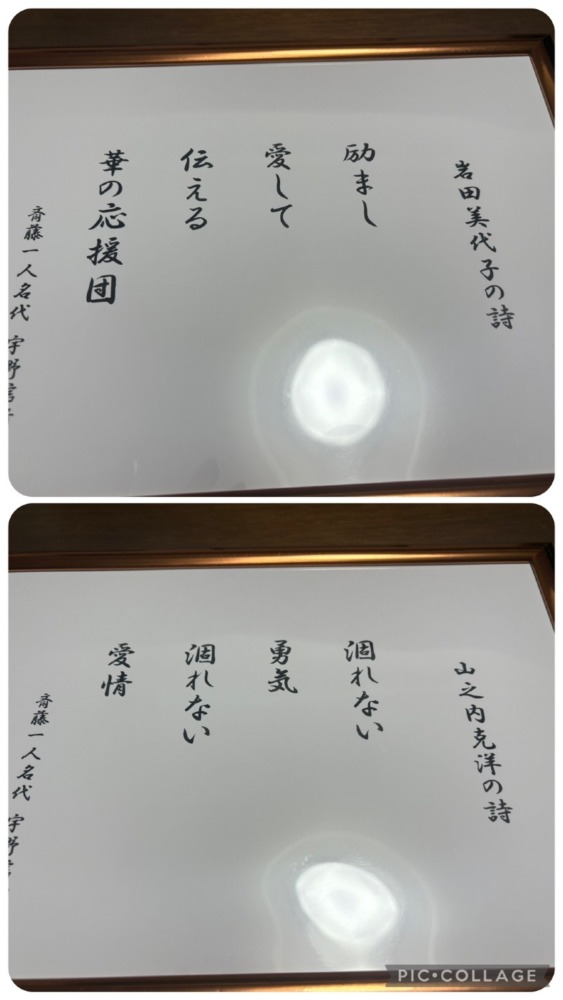 岩田美代子の詩
励まし
愛して
伝える
華の応援団
斉藤一人名代 宇野信
山之内克洋の詩
涸れない
勇気
涸れない
愛情
斉藤一人名代 宇野
PIC•COLLAGE